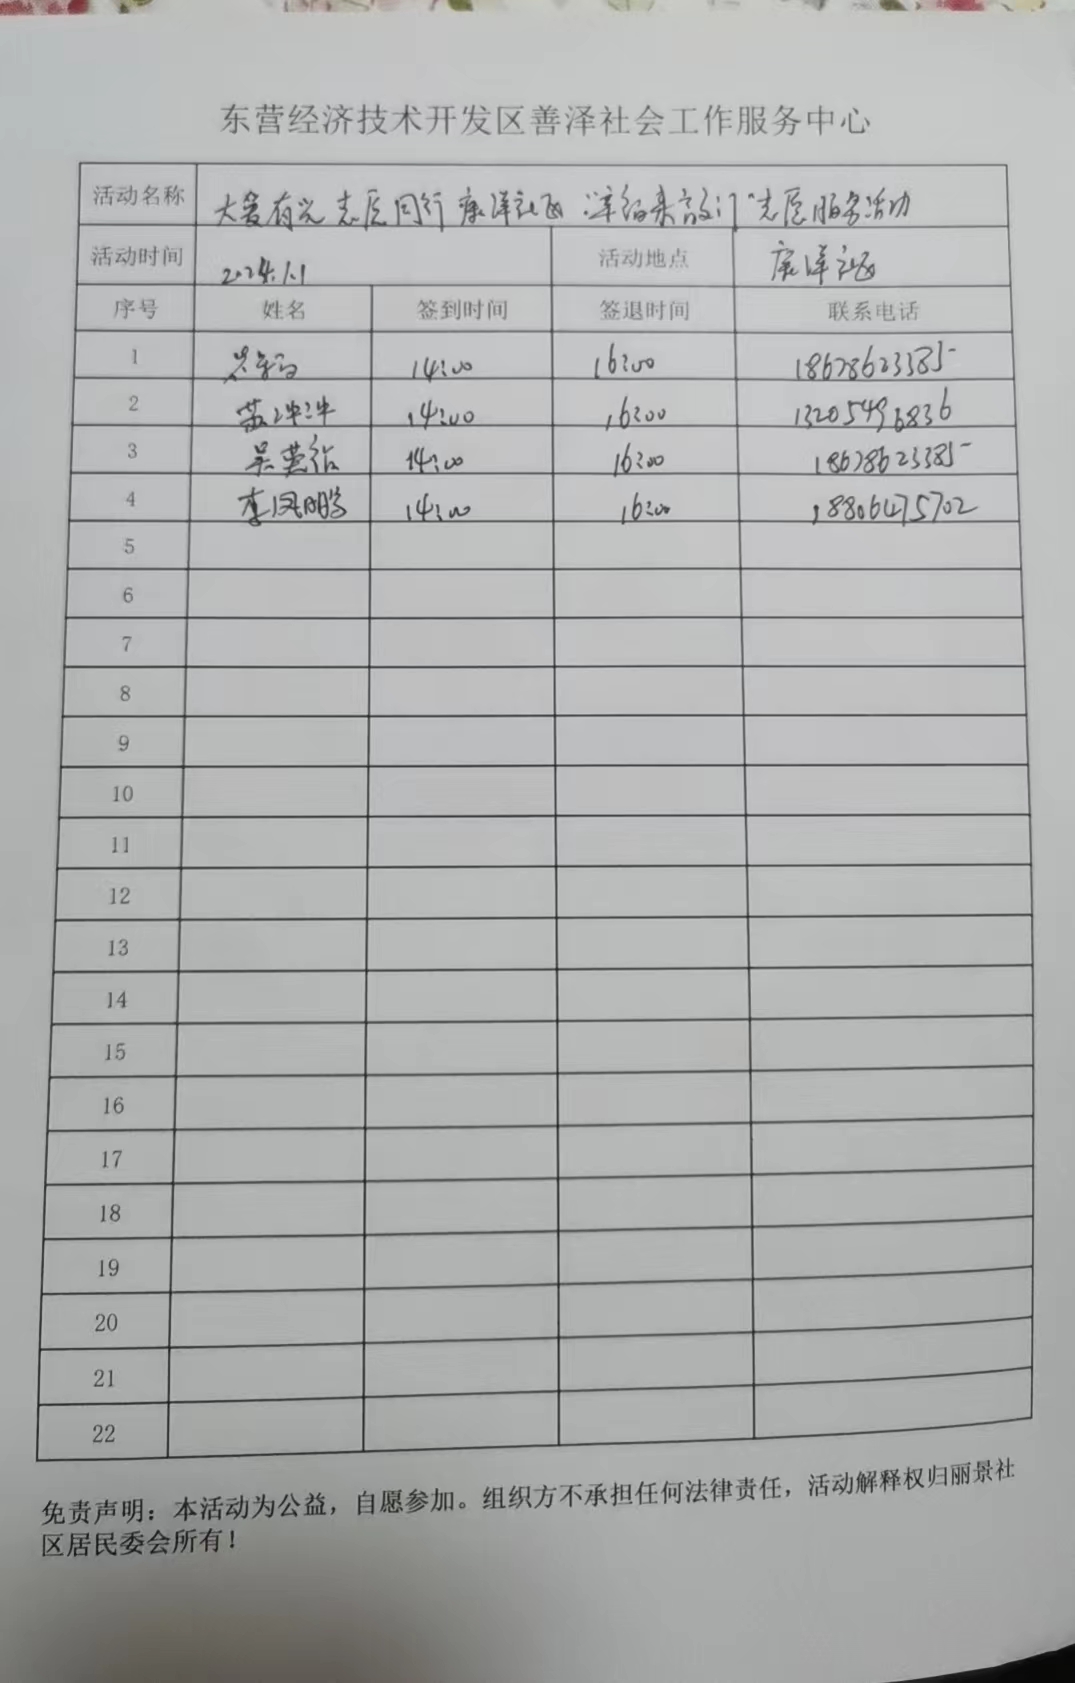 东营经济技术开发区善泽社会工作服务中心
活动名称 大爱有光 志愿同行 康洋社区"洋洋来敲门"志愿服务活动
活动时间 2024.1.1 活动地点 康洋社区
序号 姓名 签到时间 签退时间 联系电话
1 14:00 16:00 18678623385
2 苏冲冲 14:00 16:00 13205496836
3 吴莹 14:00 16:00 18678623385
4 李凤鹏 14:00 16:00 18806475702
5
6
7
8
9
10
11
12
13
14
15
16
17
18
19
20
21
22
免责声明：本活动为公益，自愿参加。组织方不承担任何法律责任，活动解释权归丽景社
区居民委会所有！